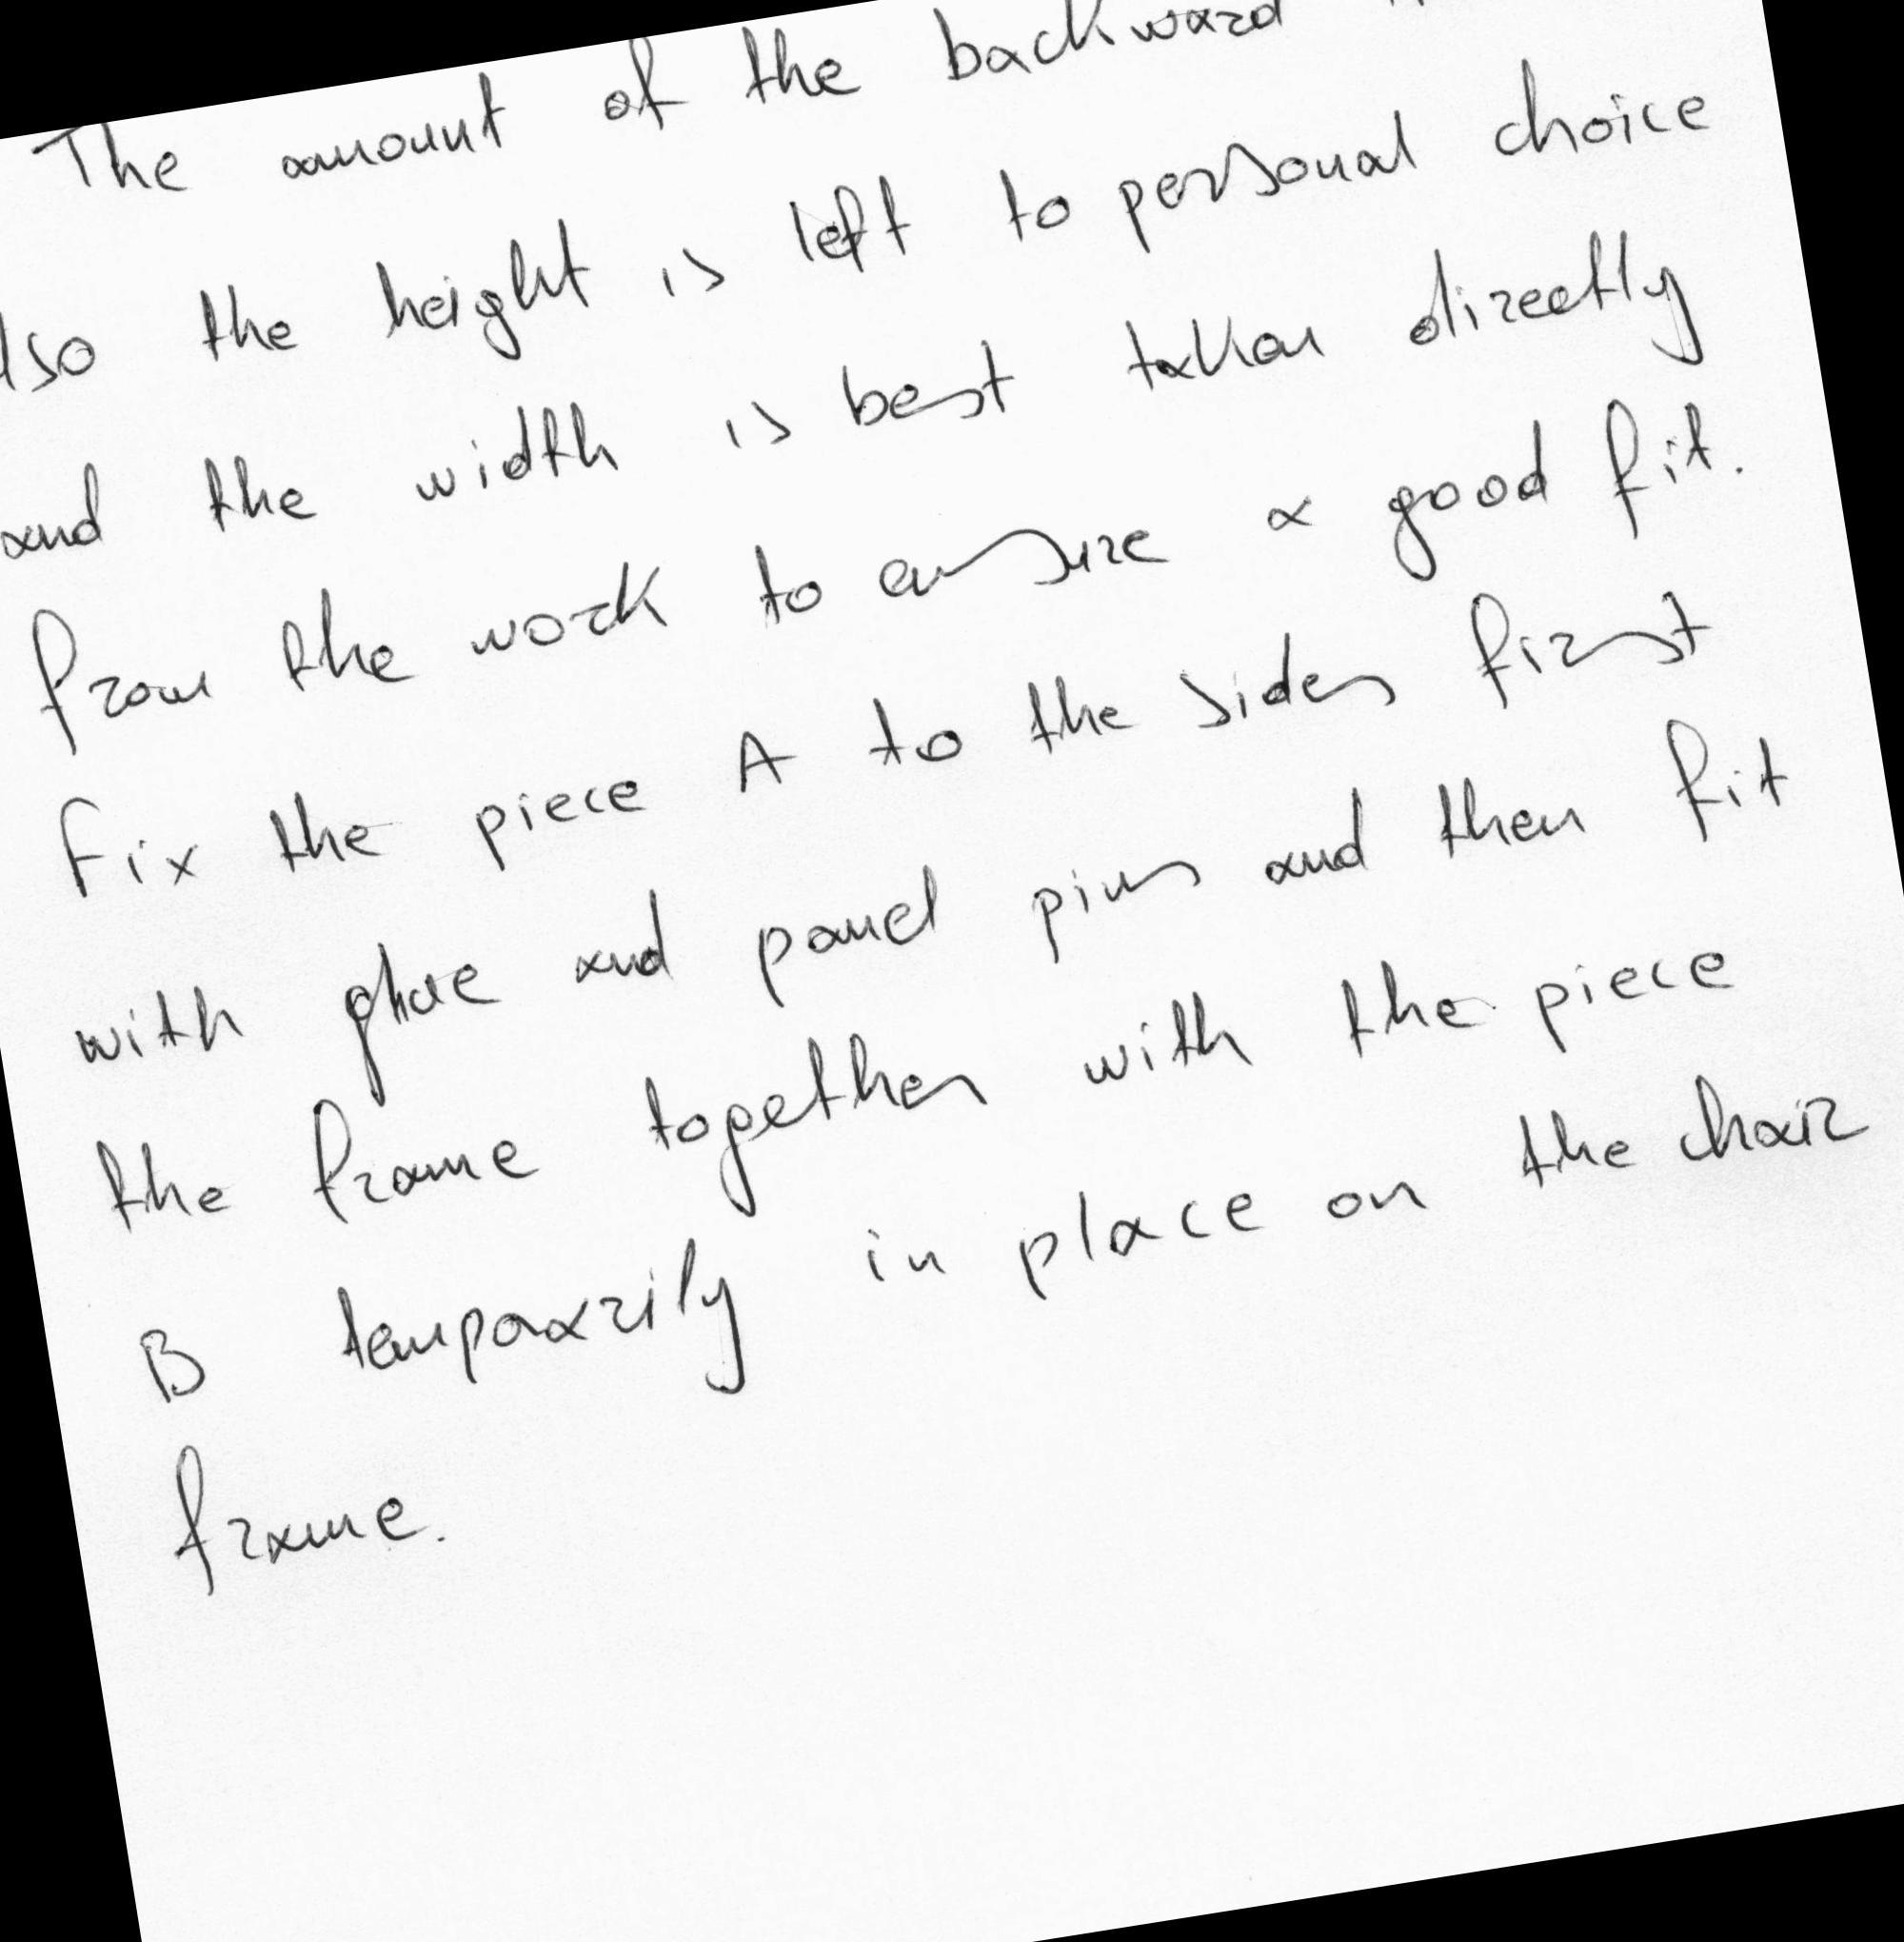 The amount of the backward
also the height is left to personal choice
and the width is best taken directly
from the work to ensure a good fit.
Fix the piece A to the sides first
with glue and panel pins and then fit
the frame together with the piece
B temporarily in place on the chair
frame.